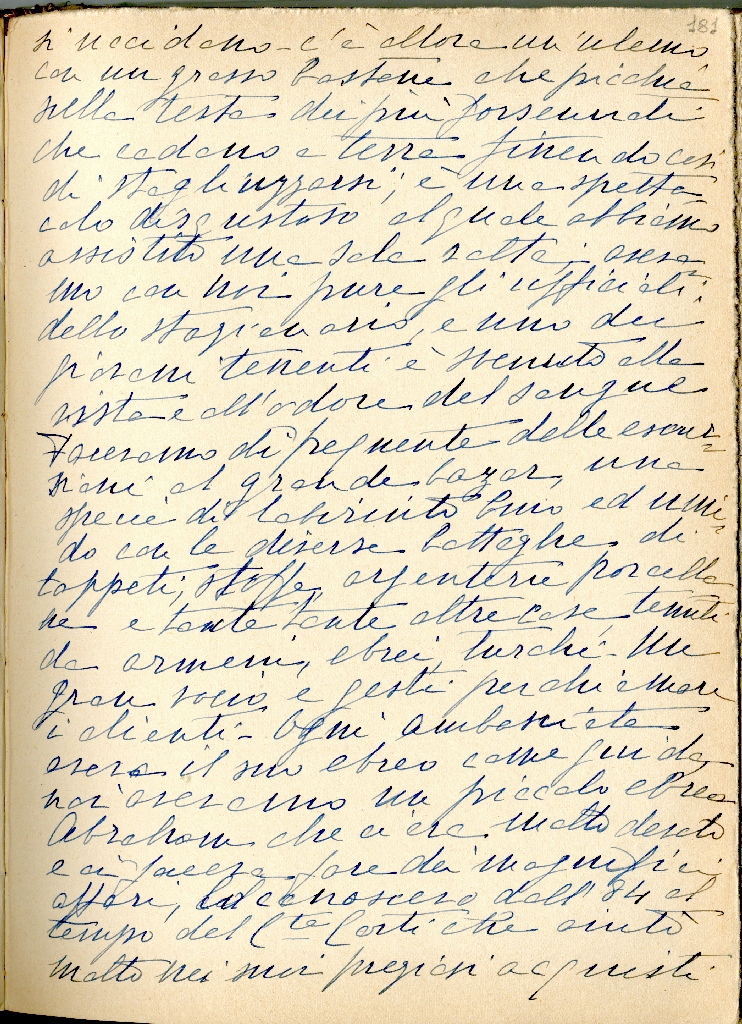 181
si uccidono - c'è allora un ulema
con un grosso bastone che picchia
sulla testa dei più forsennati
che cadono a terra finendo così
di stagliuzzarsi; è uno spetta-
colo disgustoso al quale abbiamo
assistito una sola volta; aveva-
mo con noi pure gli ufficiali
dello stazionario, e uno dei
giovani tenenti è svenuto alla
vista e all'odore del sangue
Facevamo di frequente delle escur-
sioni al grande bazar, una
specie di labirinto buio ed umi-
do con le diverse botteghe di
tappeti, stoffe, argenterie porcella
ne e tante tante altre cose, tenuti
da armeni, ebrei, turchi - Un
gran vocio e gesti per chiamare
i clienti - Ogni ambasciata
aveva il suo ebreo come guida,
noi avevamo un piccolo ebreo
Abraham che ci era molto devoto
e ci faceva fare dei magnifici
affari, lo conoscevo dall'84 al
tempo del Cte Corti che aiutò
molto nei suoi preziosi acquisti